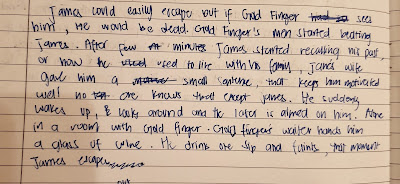 James could easily escape but if Gold Finger sees
him, He would be dead. Gold Finger's men started beating
James. After few minutes James started recalling his past,
or how he used to live with his family, James wife
gave him a small sentence, that keeps him motivated
well no one knows that except James. He suddenly
wakes up, & looks around and the laser is aimed on him. Alone
in a room with Gold finger. Gold finger's waiter hands him
a glass of wine. He drinks one sip and faints, that moment
James escape